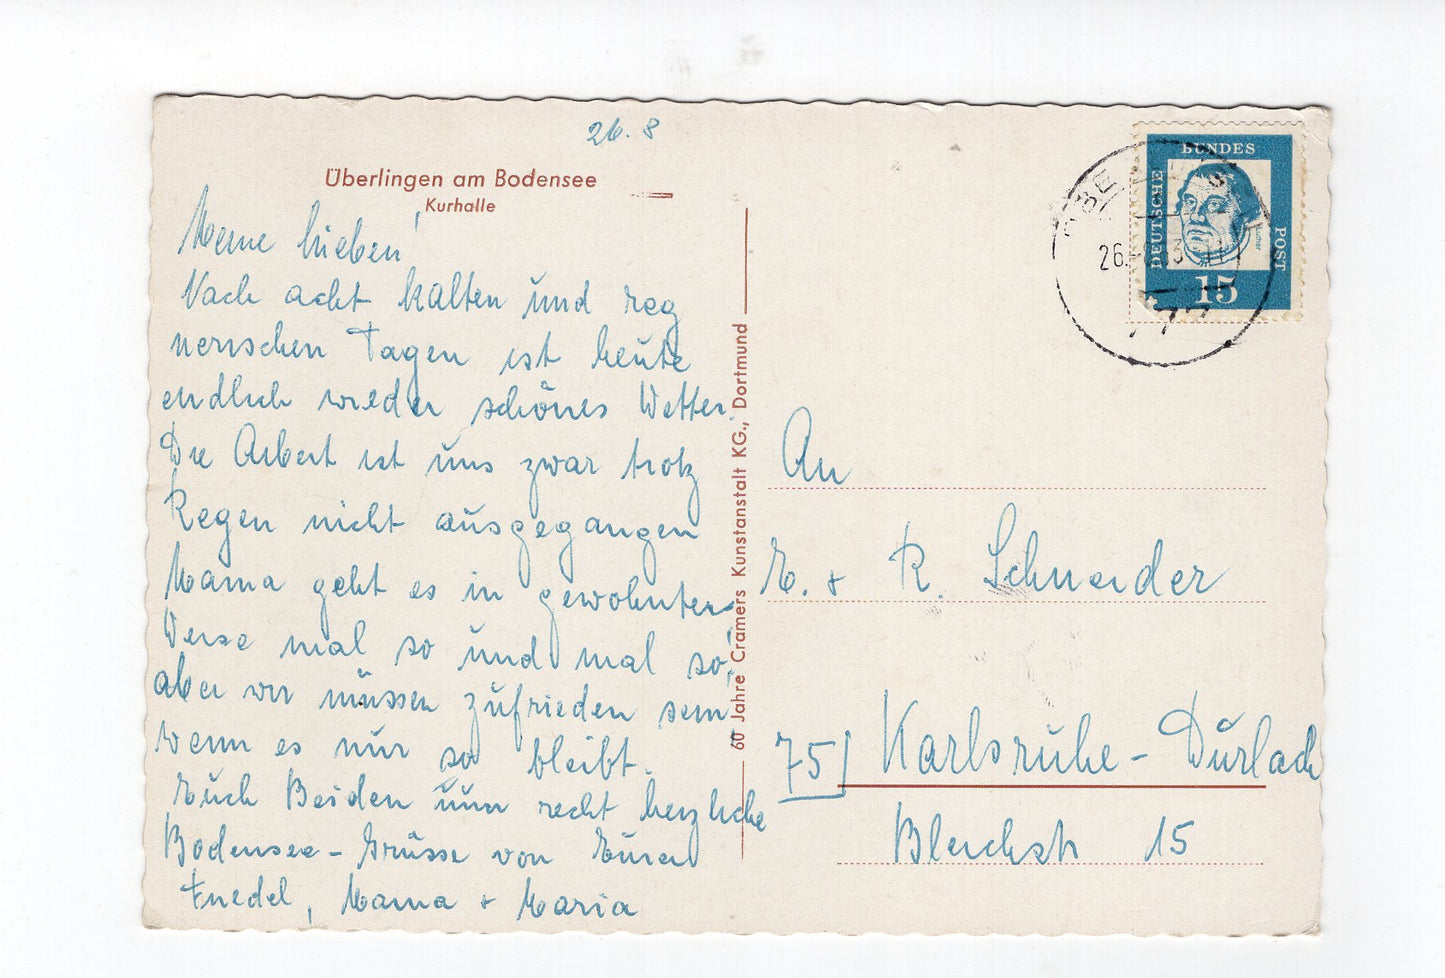 26. 8
Überlingen am Bodensee
Kurhalle
Meine Lieben!
Nach acht kalten und reg
nerischen Tagen ist heute
endlich wieder schönes Wetter.
Die Arbeit ist uns zwar trotz
Regen nicht ausgegangen
Mama geht es in gewohnter
Weise mal so und mal so,
aber wir müssen zufrieden sein
wenn es nur so bleibt.
Euch Beiden nun recht herzliche
Bodensee-Grüsse von Euren
Friedel, Mama + Maria
60 Jahre Cramers Kunstanstalt KG., Dortmund
BUNDES
DEUTSCHE
POST
15
An
E. + R. Schneider
75 Karlsruhe-Durlach
Bleichstr 15